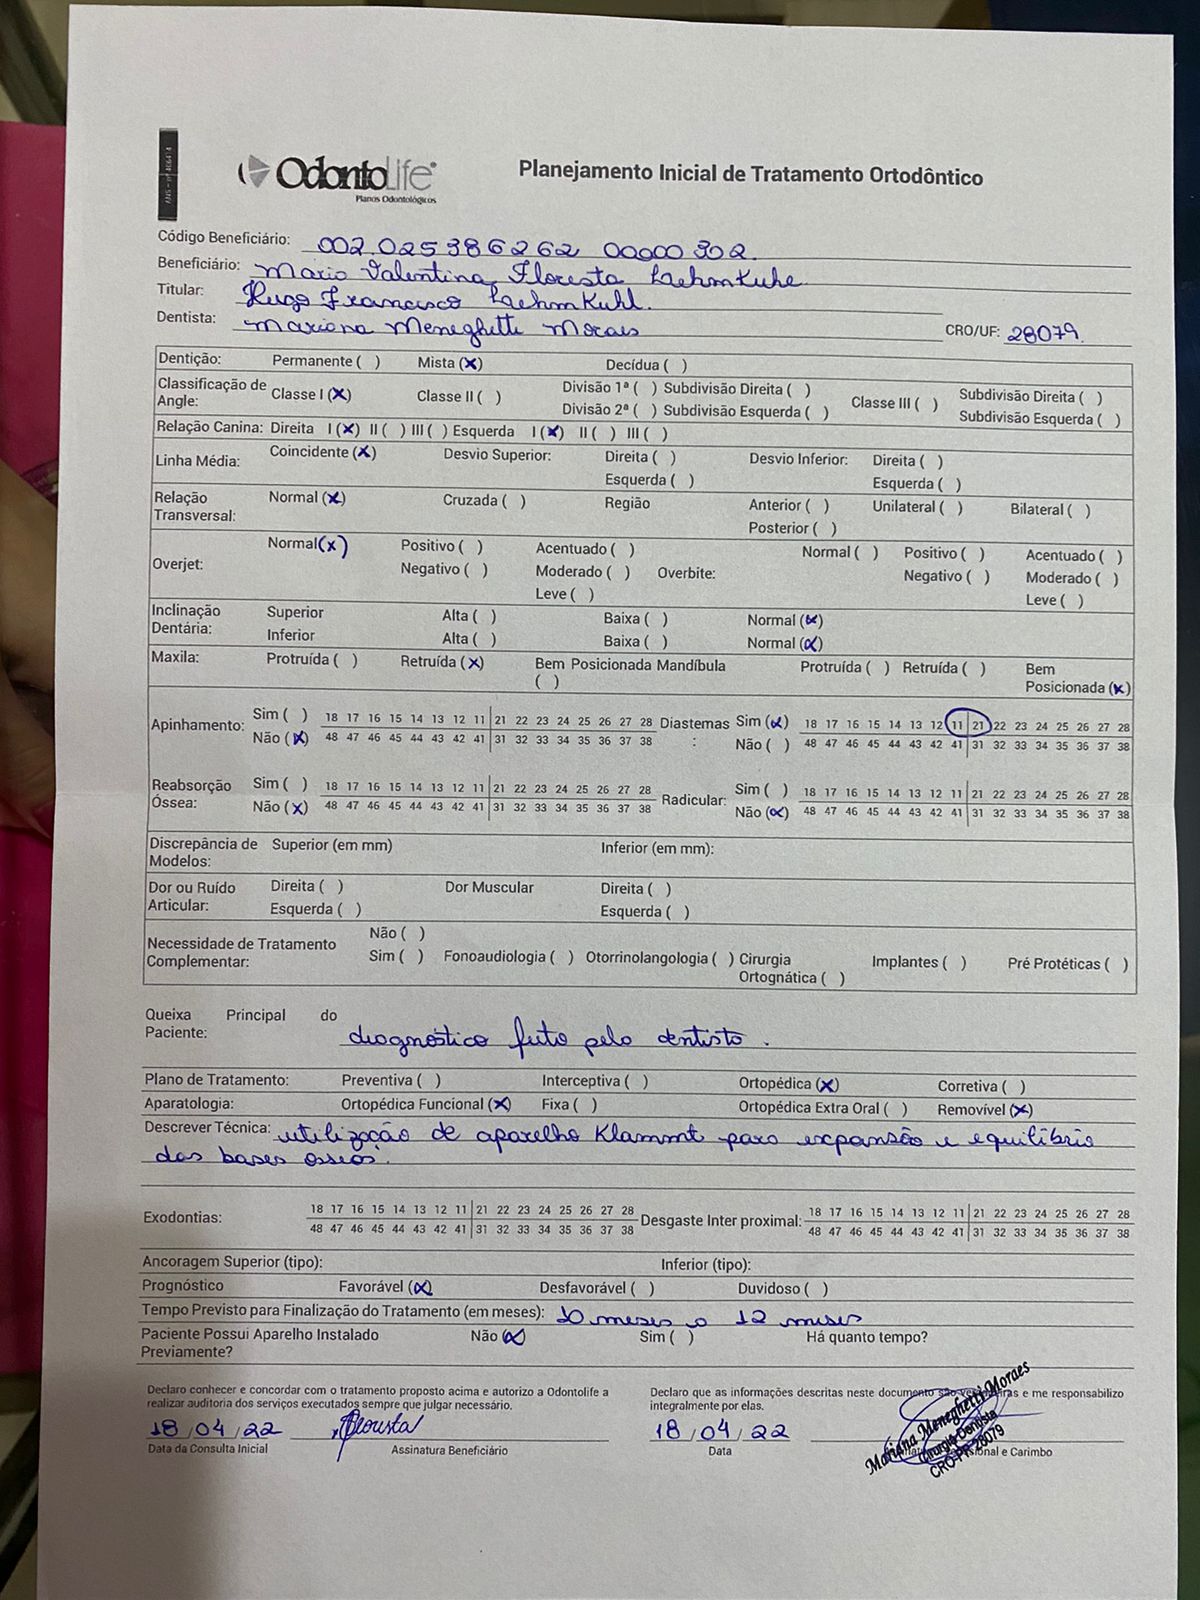 OdontoLife
Planos Odontológicos
Planejamento Inicial de Tratamento Ortodôntico
Código Beneficiário: 002.025386262 00000302.
Beneficiário: Maria Valentina Floresta Laehmkuhe
Titular: Hugo Francisco Laehmkuhl.
Dentista: Mariana Meneghetti Moraes CRO/UF: 28079.
Dentição: Permanente ( ) Mista (x) Decídua ( )
Classificação de Angle: Classe I (x) Classe II ( ) Divisão 1ª ( ) Subdivisão Direita ( ) Divisão 2ª ( ) Subdivisão Esquerda ( ) Classe III ( ) Subdivisão Direita ( ) Subdivisão Esquerda ( )
Relação Canina: Direita I (x) II ( ) III ( ) Esquerda I (x) II ( ) III ( )
Linha Média: Coincidente (x) Desvio Superior: Direita ( ) Esquerda ( ) Desvio Inferior: Direita ( ) Esquerda ( )
Relação Transversal: Normal (x) Cruzada ( ) Região Anterior ( ) Posterior ( ) Unilateral ( ) Bilateral ( )
Overjet: Normal (x) Positivo ( ) Negativo ( ) Acentuado ( ) Moderado ( ) Leve ( ) Overbite: Normal ( ) Positivo ( ) Negativo ( ) Acentuado ( ) Moderado ( ) Leve ( )
Inclinação Dentária: Superior Alta ( ) Baixa ( ) Normal (x)
Inferior Alta ( ) Baixa ( ) Normal (x)
Maxila: Protruída ( ) Retruída (x) Bem Posicionada ( ) Mandíbula Protruída ( ) Retruída ( ) Bem Posicionada (x)
Apinhamento: Sim ( ) 18 17 16 15 14 13 12 11 21 22 23 24 25 26 27 28 Diastemas: Sim (x) 18 17 16 15 14 13 12 11 21 22 23 24 25 26 27 28
Não (x) 48 47 46 45 44 43 42 41 31 32 33 34 35 36 37 38 Não ( ) 48 47 46 45 44 43 42 41 31 32 33 34 35 36 37 38
Reabsorção Óssea: Sim ( ) 18 17 16 15 14 13 12 11 21 22 23 24 25 26 27 28 Radicular: Sim ( ) 18 17 16 15 14 13 12 11 21 22 23 24 25 26 27 28
Não (x) 48 47 46 45 44 43 42 41 31 32 33 34 35 36 37 38 Não (x) 48 47 46 45 44 43 42 41 31 32 33 34 35 36 37 38
Discrepância de Modelos: Superior (em mm) Inferior (em mm):
Dor ou Ruído Articular: Direita ( ) Esquerda ( ) Dor Muscular Direita ( ) Esquerda ( )
Necessidade de Tratamento Complementar: Não ( )
Sim ( ) Fonoaudiologia ( ) Otorrinolangologia ( ) Cirurgia Ortognática ( ) Implantes ( ) Pré Protéticas ( )
Queixa Principal do Paciente: diagnóstico feito pela dentista.
Plano de Tratamento: Preventiva ( ) Interceptiva ( ) Ortopédica (x) Corretiva ( )
Aparatologia: Ortopédica Funcional (x) Fixa ( ) Ortopédica Extra Oral ( ) Removível (x)
Descrever Técnica: utilização de aparelho Klammt para expansão e equilíbrio
das bases ósseas.
Exodontias: 18 17 16 15 14 13 12 11 21 22 23 24 25 26 27 28 Desgaste Inter proximal: 18 17 16 15 14 13 12 11 21 22 23 24 25 26 27 28
48 47 46 45 44 43 42 41 31 32 33 34 35 36 37 38 48 47 46 45 44 43 42 41 31 32 33 34 35 36 37 38
Ancoragem Superior (tipo): Inferior (tipo):
Prognóstico Favorável (x) Desfavorável ( ) Duvidoso ( )
Tempo Previsto para Finalização do Tratamento (em meses): 10 meses a 12 meses
Paciente Possui Aparelho Instalado Previamente? Não (x) Sim ( ) Há quanto tempo?
Declaro conhecer e concordar com o tratamento proposto acima e autorizo a Odontolife a
realizar auditoria dos serviços executados sempre que julgar necessário.
Declaro que as informações descritas neste documento são e me responsabilizo
integralmente por elas.
18/04/22 Floresta
Data da Consulta Inicial Assinatura Beneficiário
18/04/22
Data Carimbo
Mariana Meneghetti Moraes
Cirurgiã-Dentista
CRO-PR-28079